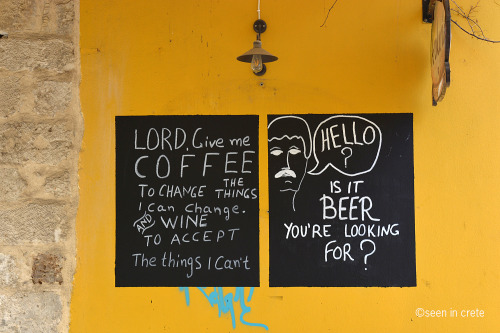 LORD, Give me
COFFEE
TO CHANGE THE THINGS
I can change.
AND WINE
TO ACCEPT
The things I Can't
HELLO
?
IS IT
BEER
YOU'RE LOOKING
FOR?
©seen in crete